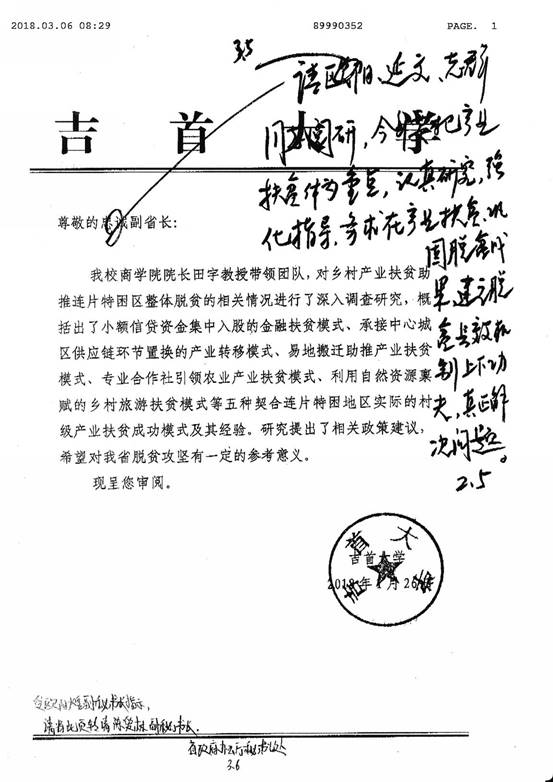 2018.03.06 08:29 89990352 PAGE. 1
3.5
同志阅研，今
扶贫作为重点，认真研究，强
化指导，务求在产业扶贫、巩
固脱贫成
果，建立脱
贫长效机
制上下功
夫，真正解
决问题。
2.5
吉首大学
尊敬的忠诚副省长：
我校商学院院长田宇教授带领团队，对乡村产业扶贫助
推连片特困区整体脱贫的相关情况进行了深入调查研究，概
括出了小额信贷资金集中入股的金融扶贫模式、承接中心城
区供应链环节置换的产业转移模式、易地搬迁助推产业扶贫
模式、专业合作社引领农业产业扶贫模式、利用自然资源禀
赋的乡村旅游扶贫模式等五种契合连片特困地区实际的村
级产业扶贫成功模式及其经验。研究提出了相关政策建议，
希望对我省脱贫攻坚有一定的参考意义。
现呈您审阅。
吉首大学
吉首大学
副秘书长指示，
副秘书长.
省政府办公厅秘书处
3.6